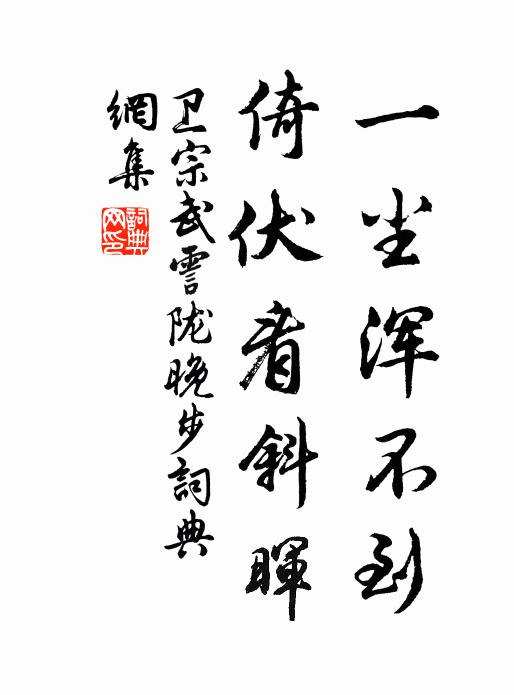 一尘浑不到
倚伏看斜暉
卫宗武霅陇晚步詞典
網集
詞典網印